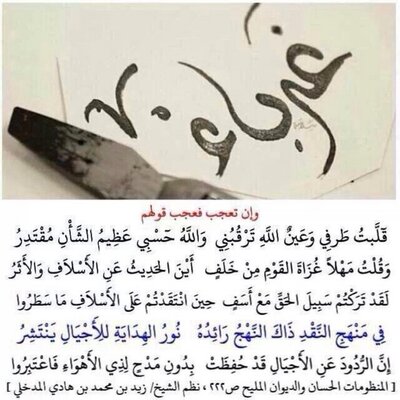 غرباء
وإن تعجب فعجب قولهم
قَلَّبتُ طَرفِي وَعَينُ اللَّهِ تَرْقُبُنِي وَاللَّهُ حَسْبِي عَظِيمُ الشَّأْنِ مُقْتَدِرُ
وَقُلْتُ مَهْلاً غُزَاةَ القَوْمِ مِنْ خَلَفٍ أَيْنَ الحَدِيثُ عَنِ الأَسْلَافِ وَالأَثَرُ
لَقَدْ تَرَكتُمْ سَبِيلَ الحَقِّ مَعْ أَسَفٍ حِينَ انْتَقَدْتُمْ عَلَى الأَسْلَافِ مَا سَطَرُوا
فِي مَنْهَجِ النَّقْدِ ذَاكَ النَّهْجُ رَائِدُهُ نُورُ الهِدَايَةِ لِلأَجْيَالِ يَنْتَشِرُ
إِنَّ الرُّدُودَ عَنِ الأَجْيَالِ قَدْ حُفِظَتْ بِدُونِ مَدْحٍ لِذِي الأَهْوَاءِ فَاعْتَبِرُوا
[ المنظومات الحسان والديوان المليح ص٢٢٢ ، نظم الشيخ/ زيد بن محمد بن هادي المدخلي ]